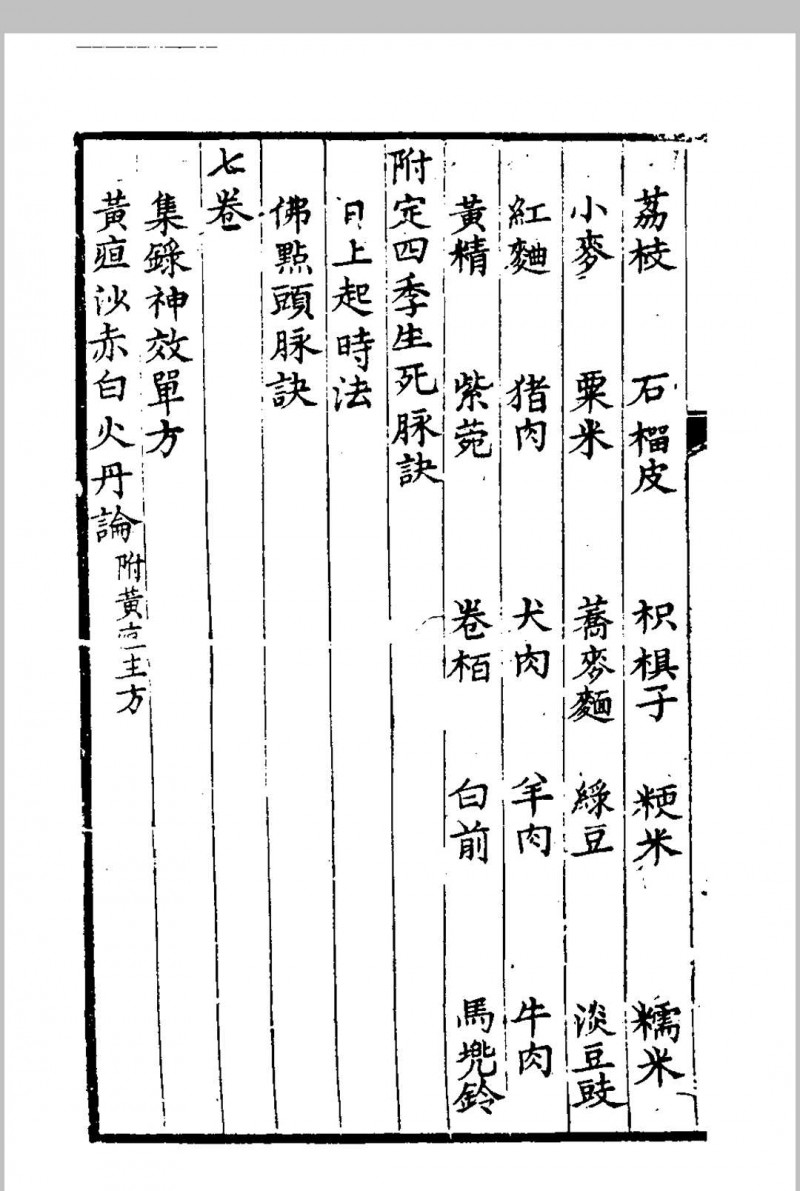 荔枝 石榴皮 枳椇子 粳米 糯米
小麥 粟米 蕎麥麵 綠豆 淡豆豉
紅麯 猪肉 犬肉 羊肉 牛肉
黃精 紫菀 卷栢 白前 馬兠鈴
附定四季生死脉訣
日上起時法
佛點頭脉訣
七卷
集錄神效單方
黃疸沙赤白火丹論附黃疸主方